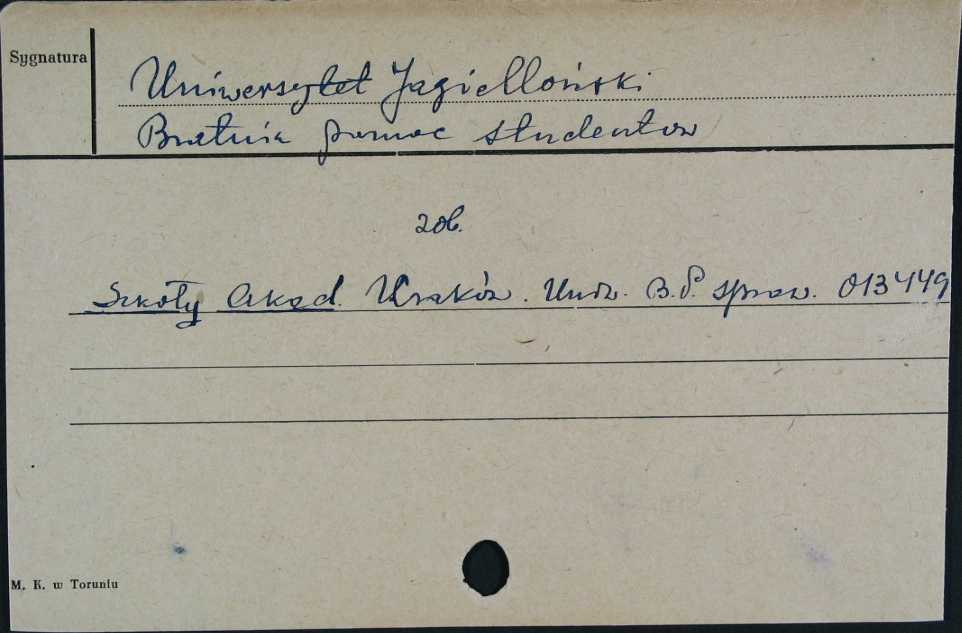 Sygnatura
Uniwersytet Jagielloński
Bratnia pomoc studentów
zob.
Szkoły Akad. Kraków. Uniw. B.P. spraw. 013449
M. K. w Toruniu